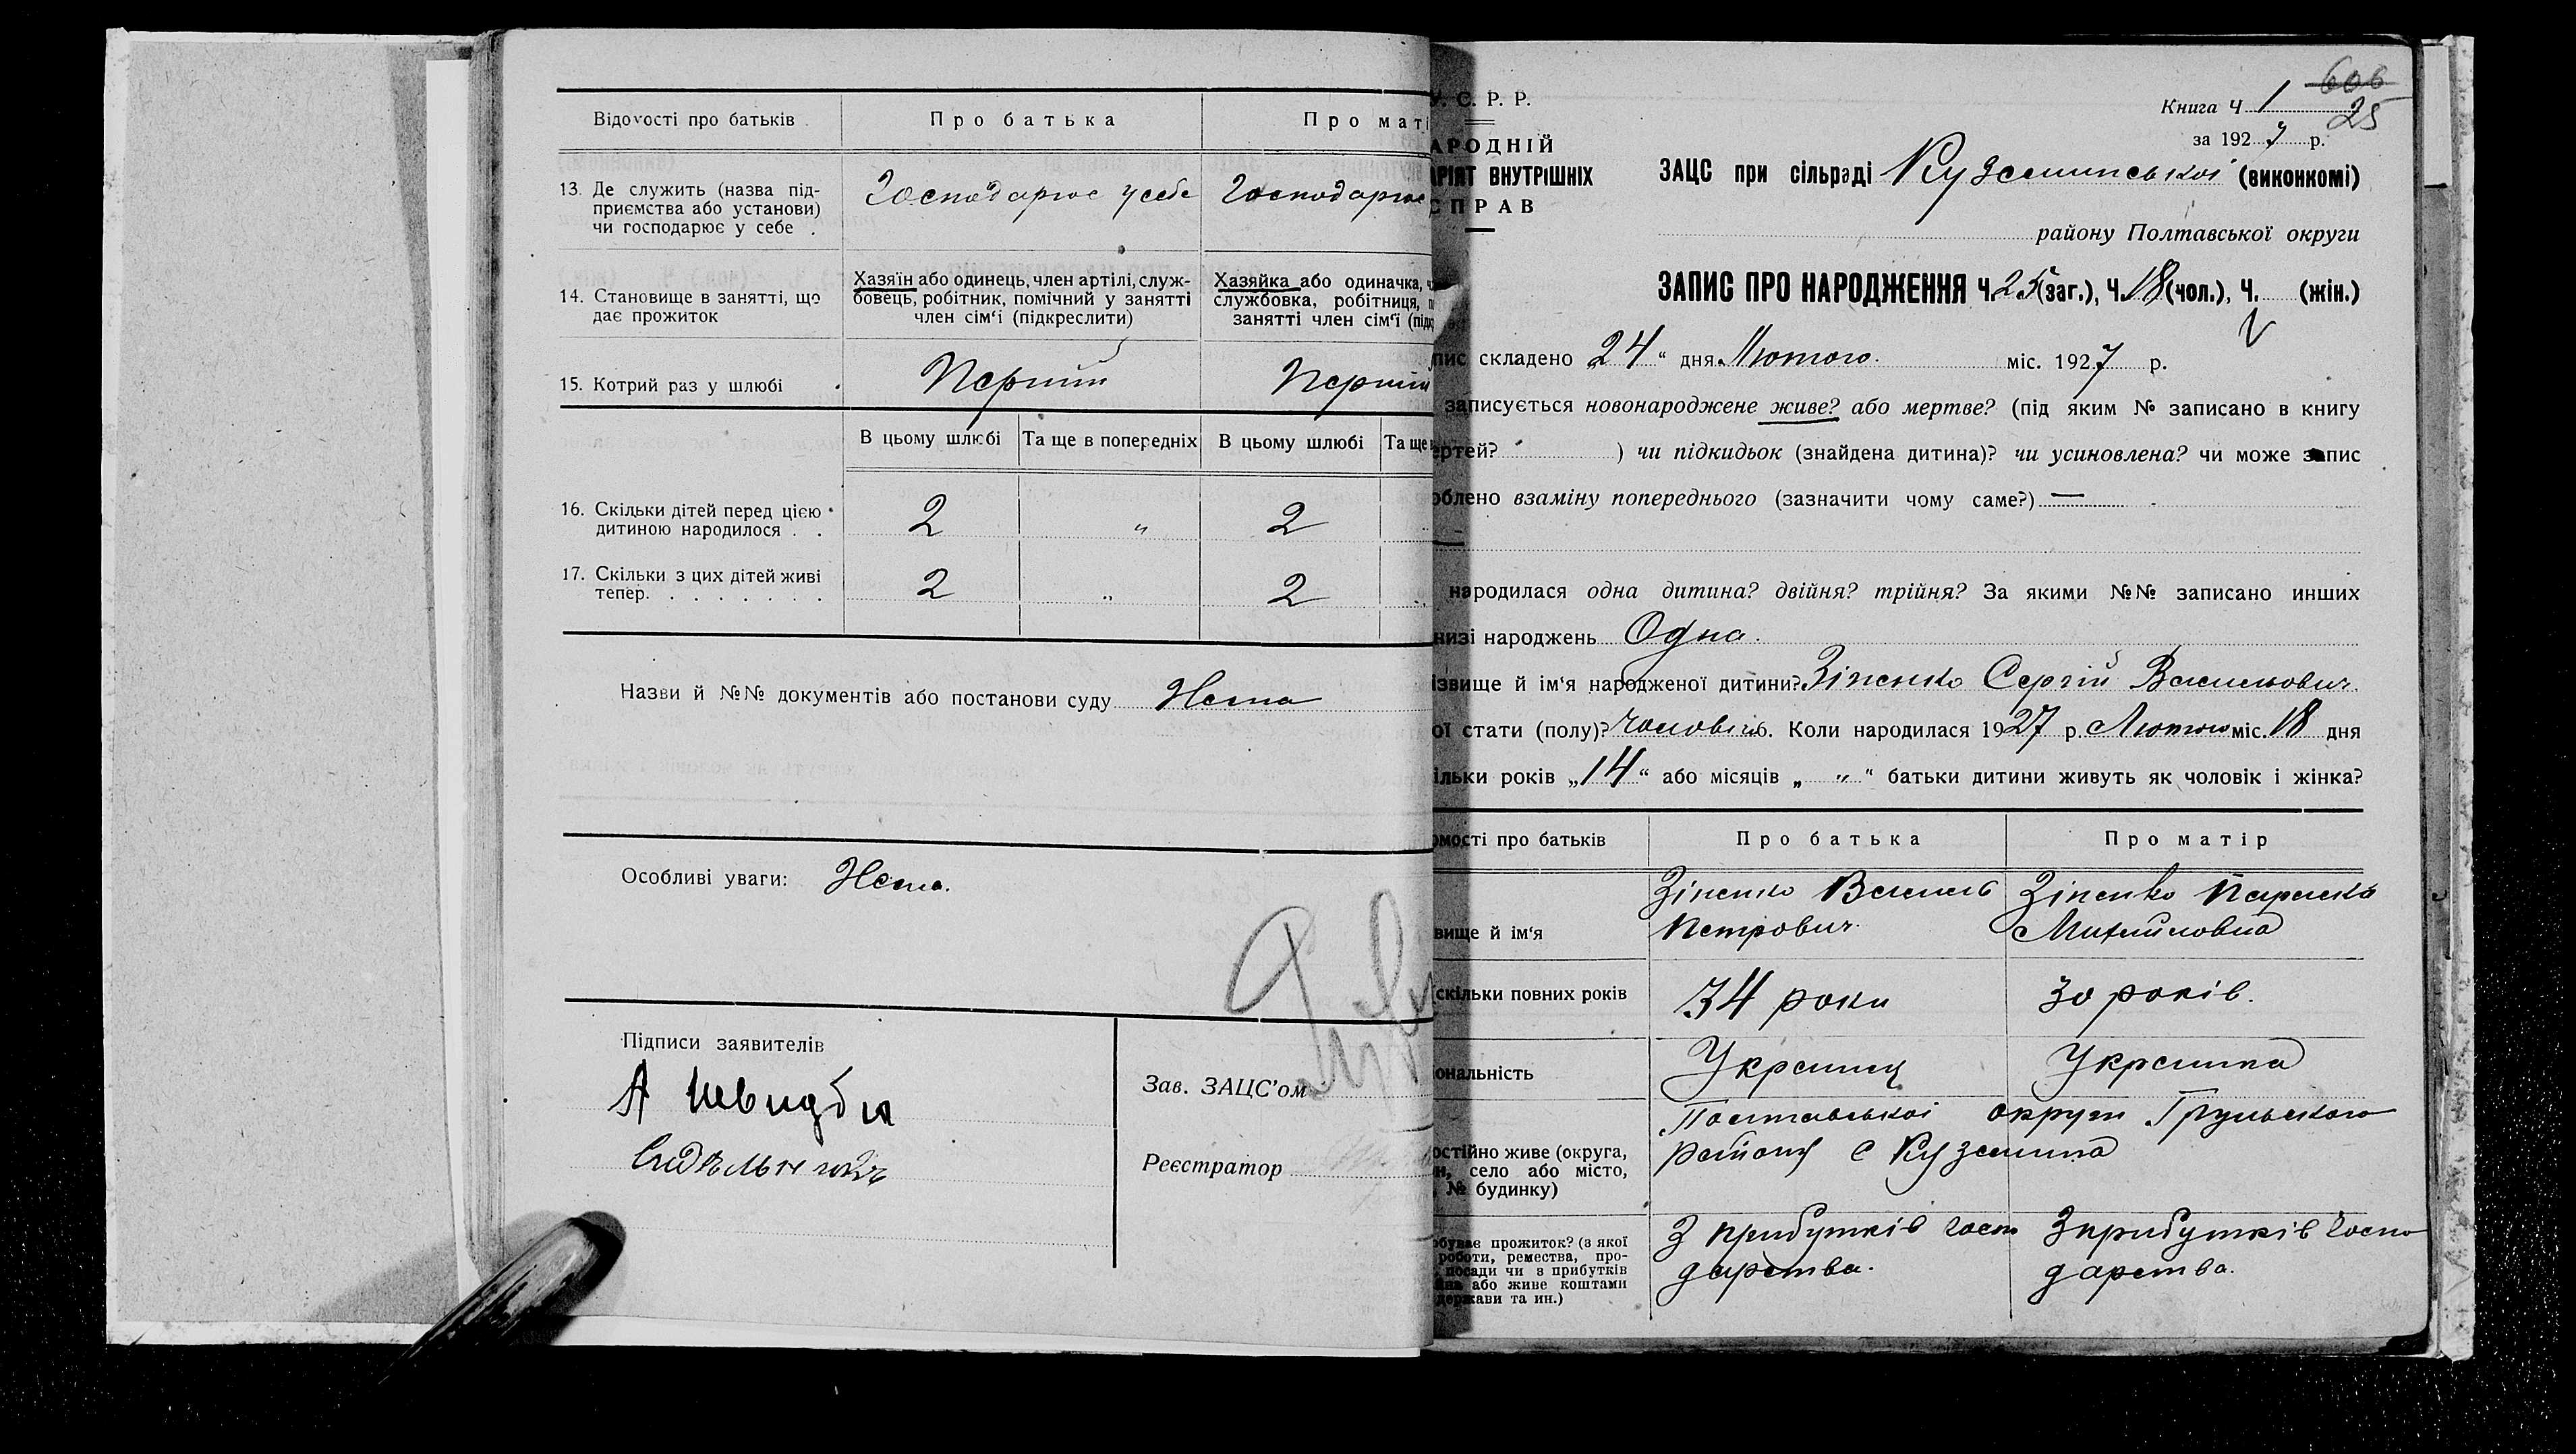 Відомості про батьків
Про батька
Про маті
13. Де служить (назва під-
приємства або установи)
чи господарює у себе .
Господарює у себе
Господарює
14. Становище в занятті, що
дає прожиток
Хазяїн або одинець, член артілі, служ-
бовець, робітник, помічний у занятті
член сім'ї (підкреслити)
Хазяйка або одиначка, ч
службовка, робітниця, п
занятті член сім'ї (підк
15. Котрий раз у шлюбі
Перший
Перший
В цьому шлюбі
Та ще в попередніх
В цьому шлюбі
Та ще
16. Скільки дітей перед цією
дитиною народилося . .
2 " 2
17. Скільки з цих дітей живі
тепер. . . . . . . .
2 " 2
Назви й №№ документів або постанови суду Нема
Особливі уваги: Нема.
Підписи заявителів
А
Зав. ЗАЦС'ом
Реєстратор
606
Книга Ч 1
25
за 1927 р.
У. С. Р. Р.
АРОДНІЙ
РІЯТ ВНУТРІШНІХ
СПРАВ
ЗАЦС при сільраді Куземинської (виконкомі)
району Полтавської округи
ЗАПИС ПРО НАРОДЖЕННЯ Ч. 25 (заг.), Ч. 18 (чол.), Ч. (жін.)
пис складено „24“ дня Лютого. міс. 1927 р.
записується новонароджене живе? або мертве? (під яким № записано в книгу
ертей? ) чи підкидьок (знайдена дитина)? чи усиновлена? чи може запис
облено взаміну попереднього (зазначити чому саме?) —
народилася одна дитина? двійня? трійня? За якими №№ записано инших
низі народжень Одна.
ізвище й ім'я народженої дитини? Зіненко Сергій Васильович.
ої стати (полу)? чоловіч. 6. Коли народилася 1927 р. Лютого міс. 18 дня
ільки років „14“ або місяців „ " “ батьки дитини живуть як чоловік і жінка?
омості про батьків
Про батька
Про матір
вище й ім'я
Зіненко Василь
Петрович.
Зіненко Параска
Михайловна
скільки повних років
34 роки
30 років.
ональність
Українц
Українка
остійно живе (округа,
н, село або місто,
№ будинку)
Полтавської округи Грунського
району с Куземина
обуває прожиток? (з якої
роботи, ремества, про-
посади чи з прибутків
йна або живе коштами
держави та ин.)
З прибутків госпо
дарства.
З прибутків госпо
дарства.